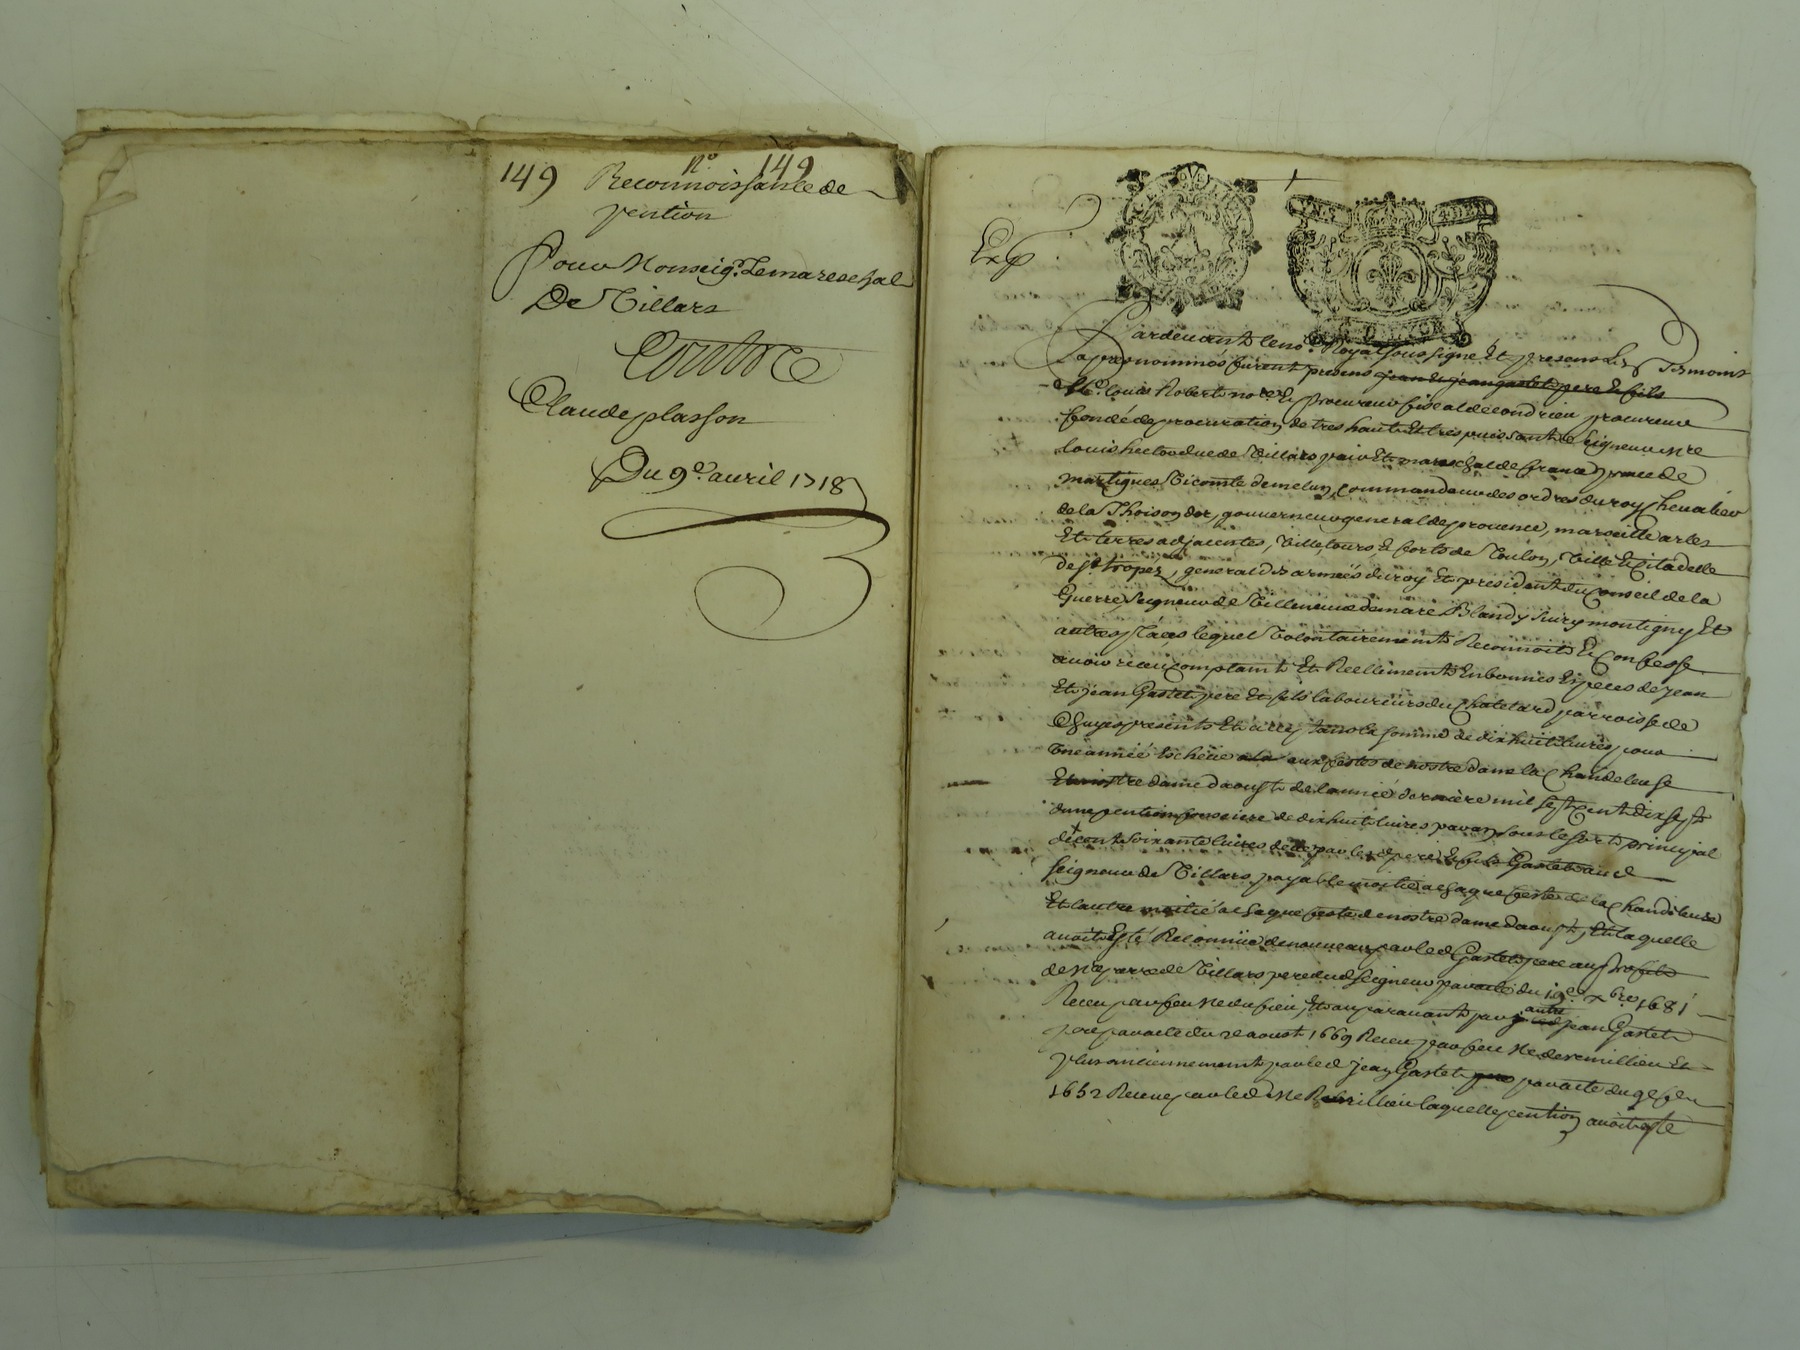 149 Reconnoissance de
n.o 149
pention
Pour Monseig.r Le mareschal
De Villars
Contre
Claude plasson
Du 9.e auril 1718
Exp.
Pardeuant le no.re Royal soussigné Et presens Les Temoins
Bas nommés furent presens jean Et jean gastet pere Et fils
M.e Louis Robert no.re Et procureur fiscal de condrieu procureur
fondé de procuration de tres haut Et tres puissant Seigneur m.re
louis hector duc de Villars pair Et mareschal de france prince de
martigues Vicomte de melun, commandeur des ordres du roy Cheualier
de la Thoison dor, gouuerneur general de prouence, marseille arles
Et terres adjacentes, Ville, tours, Et forts de Toulon, Ville Et Citadelle
de st tropez, general des armées du roy Et president du Conseil de la
Guerre, Seigneur de Villeneuue demaré Blandy Siury montigny Et
autres places lequel Volontairement Reconnoit Et Confesse
auoir receu comptant Et Reellement En bonnes Especes de jean
Et jean Gastet pere Et fils laboureurs du Chatelard parroisse de
Chuyes presents Et acceptans la somme de dixhuit liures pour
Une année Escheüe aux festes de nostre dame la Chandeleuse
Et nostre dame daoust de lannée derniere mil sept Cent dix sept
dune pention fonciere de dixhuit liures par an sous le sort principal
de cent soixante liures deüe par lesd pere Et fils Gastet aud
seigneur de Villars payable moitié a chaque feste de la Chandeleuse
Et lautre moitié a chaque feste de nostre dame daoust, Et laquelle
auoit Esté Reconnüe de nouueau par led Gastet pere au proffit
de m.re pierre de Villars pere dud seigneur par acte du 19.e xbre 1681
Receu par feu M.e dufieu, Et auparauant par autre jean Gastet
pere par acte du 2e aoust 1669 Receu par feu M.e de remillieu Et
plus anciennement par led jean Gastet par acte du 9e feu
1652 Receu par led M.e Remillieu laquelle pention auoit esté